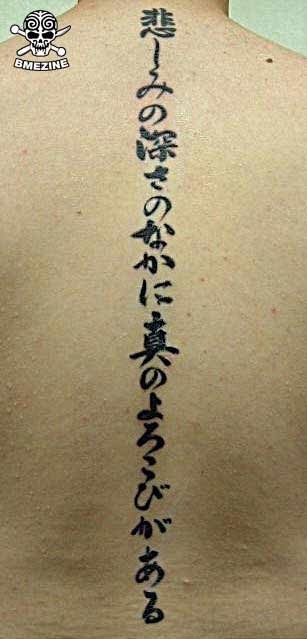 BMEZINE
悲しみの深さのなかに真のよろこびがある